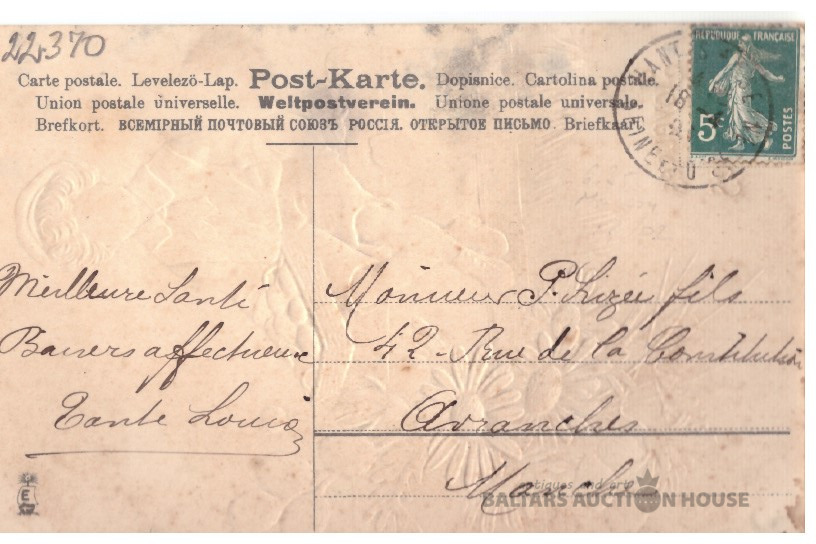 22370
RÉPUBLIQUE FRANÇAISE
5c
POSTES
Carte postale. Levelezö-Lap. Post-Karte. Dopisnice. Cartolina postale.
Union postale universelle. Weltpostverein. Unione postale universale.
Brefkort. ВСЕМІРНЫЙ ПОЧТОВЫЙ СОЮЗЪ РОССІЯ. ОТКРЫТОЕ ПИСЬМО. Briefkaart.
Meilleure Santé
Baisers affectueux
Tante Louise
Monsieur P. fils
42 - Rue de la Constitution
Avranches
Manche
antiques and art
BALTARS AUCTION HOUSE